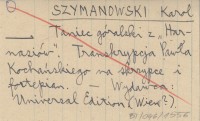 SZYMANOWSKI Karol
— Taniec góralski z „Har-
nasiów". Transkrypcja Pawła
Kochańskiego na skrzypce i
fortepian. — Wydawca:
Universal Edition (Wien?).